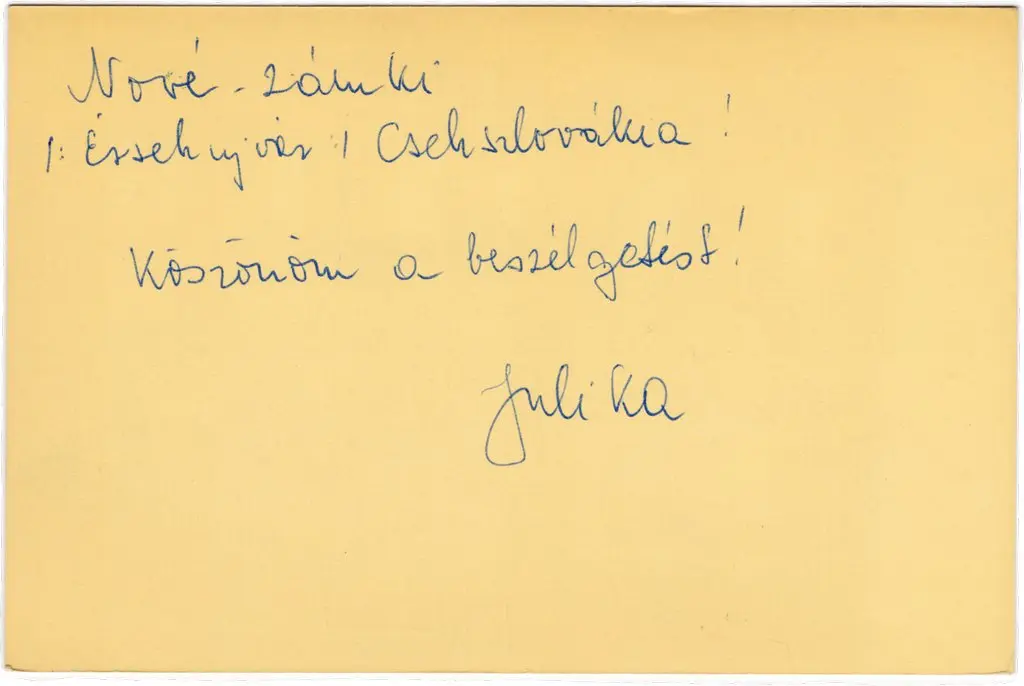 Nové-zámki
/: Érsekujvár :/ Csehszlovákia !
Köszönöm a beszélgetést!
Julika